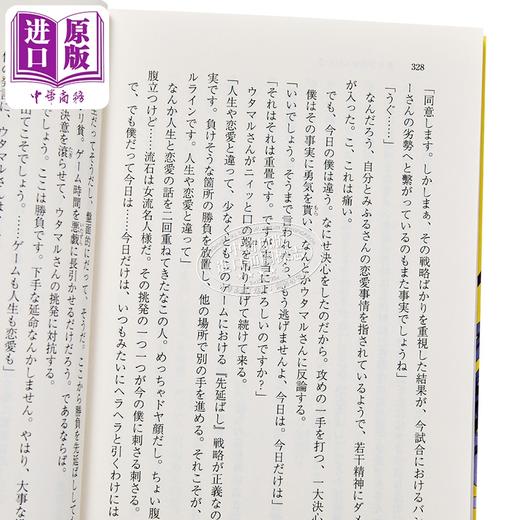 进口原版
中華商務
328
「同意します。しかしまぁ、その戦略ばかりを重視した結果が、今試合におけるバン
ーさんの劣勢へと繋がっているのもまた事実でしょうね」
「うぐ……」
なんだろう、自分とみふるさんの恋愛事情を指されているようで、若干精神にダメ
が入った。こ、これは痛い。
でも、今日の僕は、なにせ決心をしたのだから。攻めの一手を打つ、一大決心
僕はその事実に勇気を貰い、なんとかウタマルさんに反論する。
「いいでしょう。そうまで言われたら、もう逃げませんよ、今日は。今日だけは」
「それはそれは重畳です。ですが よろしいのですか?」
ウタマルさんがニィッと口の端を吊り上げて続けて来る。
「人生や恋愛と違って、少なくともこのゲームにおける『先延ばし』戦略が正義なの
実です。負けそうな箇所の勝負を放置し、他の場所で別の手を進める。それこそが、
ルラインです。人生や恋愛と違って」
なんか人生と恋愛の話を二回重ねてきたなこの人。めっちゃドヤ顔だし。ちょい腹
腹立つけど……流石は女流名人様だ。その挑発の一つ一つが今の僕に刺さる刺さる。
で、でも僕だって今日は……今日だけは、いつもみたいにヘラヘラと引くわけには
だってそうだし、盤面的にだって、そうだ。ここから勝負を先延ばしして
リ貧、ゲーム時間を悪戯に長引かせるだけだろう。であるならば。
決意を滾らせて、ウタマルさんの挑発に対抗する。
でしょう。ここは勝負です。下手な延命なんかしません。やはり、大事な
そこでしょう。……ゲームも人生も恋愛も」
に、ウタマルさんは